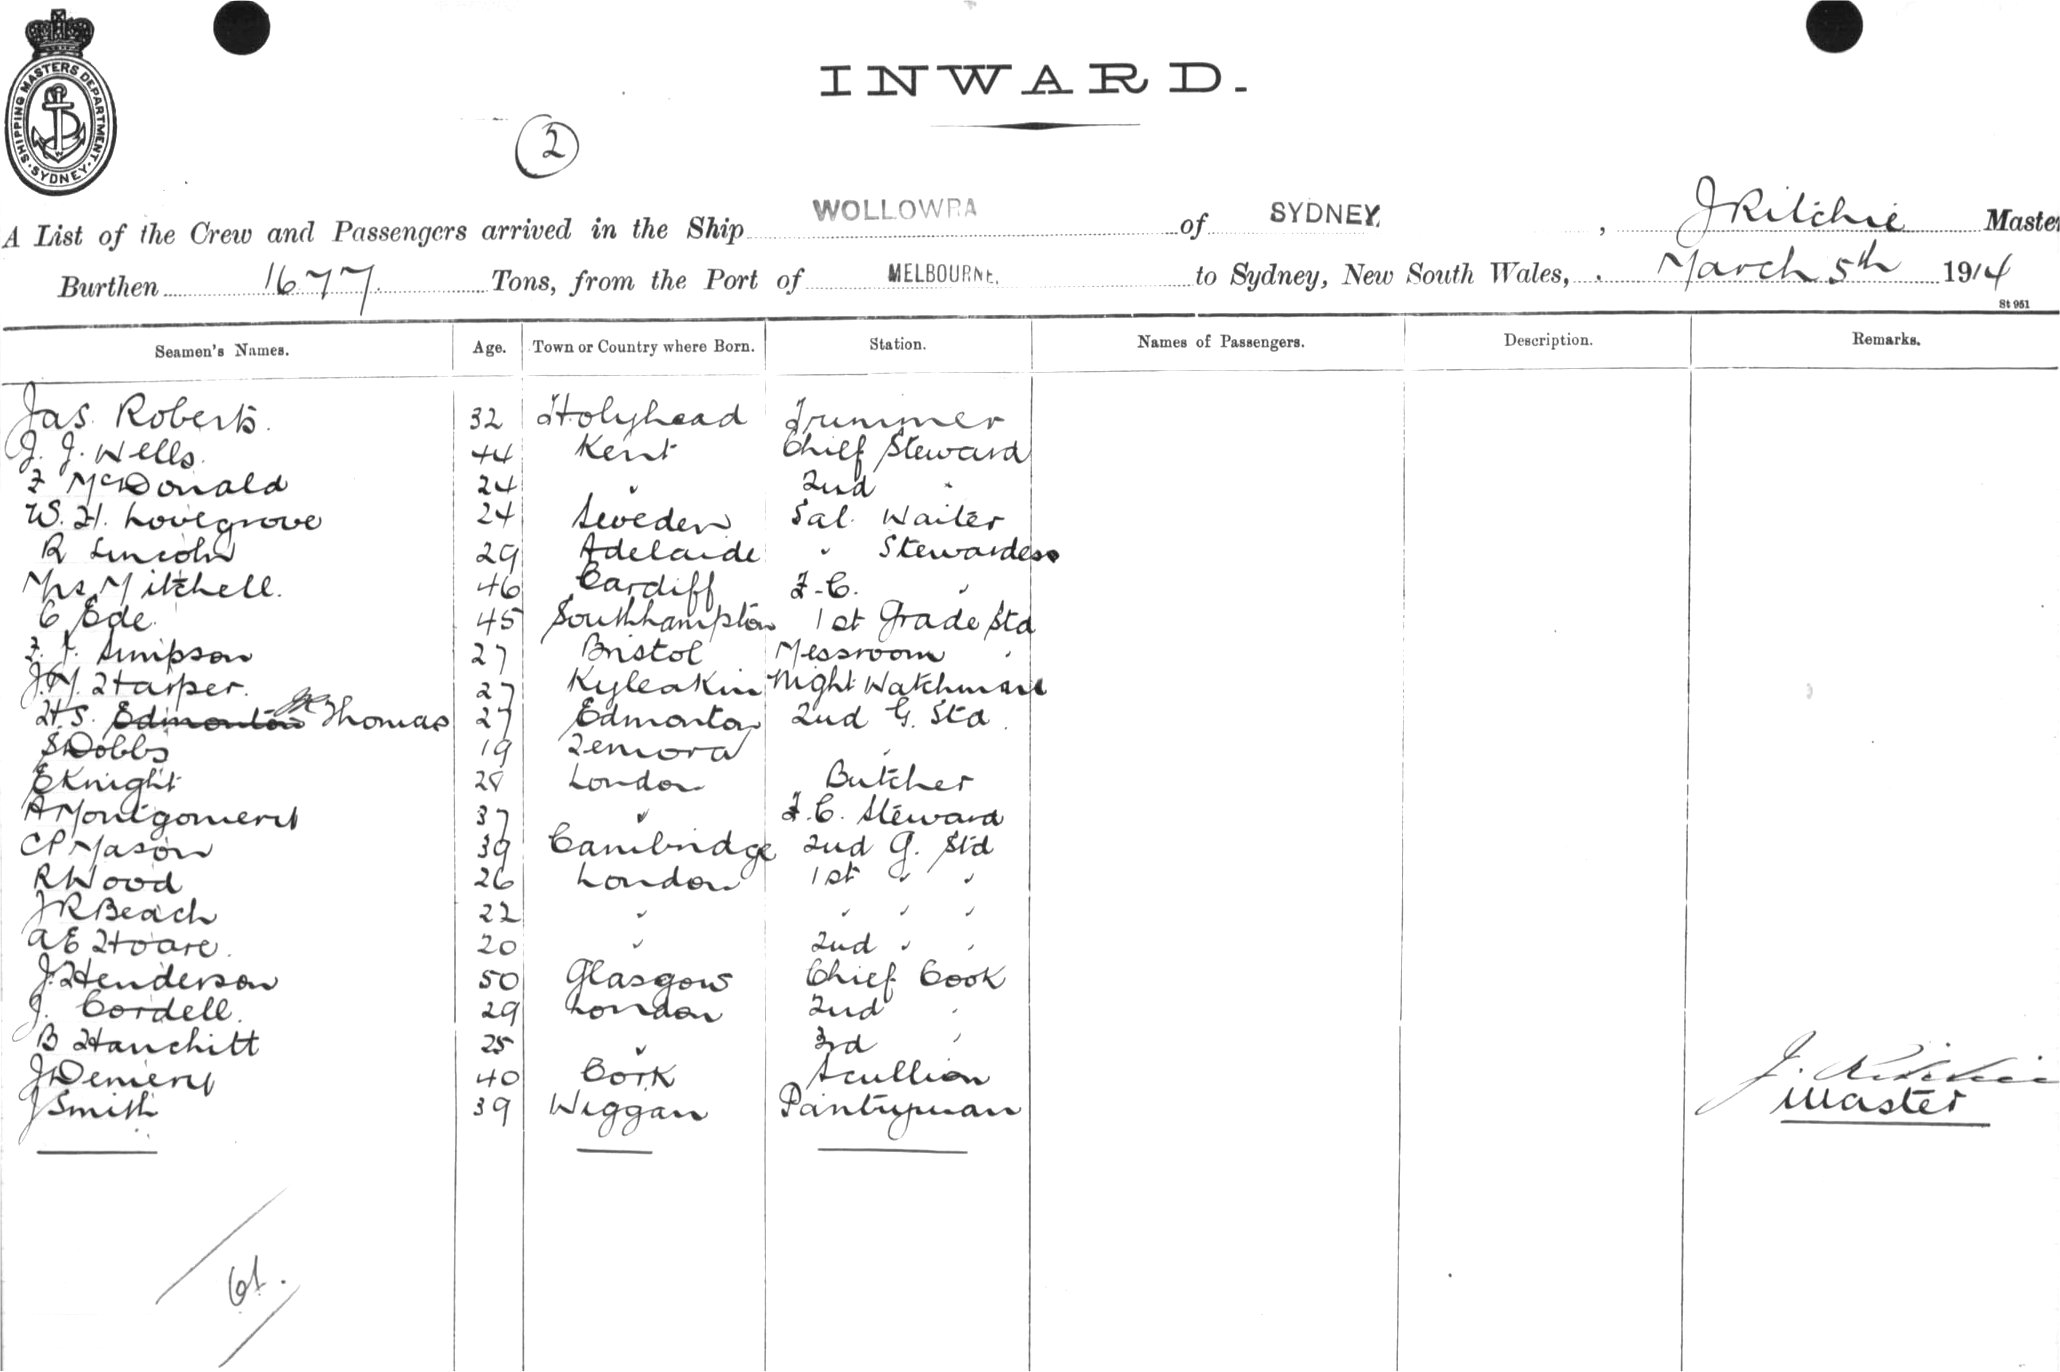 SHIPPING MASTERS DEPARTMENT. SYDNEY
INWARD.
2
A List of the Crew and Passengers arrived in the Ship WOLLOWRA of SYDNEY, J Ritchie Master
Burthen 1677 Tons, from the Port of MELBOURNE. to Sydney, New South Wales, March 5th 1914
St 951
Seamen's Names. Age. Town or Country where Born. Station. Names of Passengers. Description. Remarks.
Jas. Roberts. 32 Holyhead Trimmer
J. J. Wells. 44 Kent Chief Steward
F McDonald 24 " 2nd "
W. H. Lovegrove 24 Sweden Sal. Waiter
R Lincoln 29 Adelaide " Stewardess
Mrs Mitchell. 46 Cardiff F.C. "
C Ede. 45 Southhampton 1st Grade Std
F. J. Simpson 27 Bristol Messroom "
J. M. Harper. 27 Kyleakin Night Watchman
H.S. Edmonton Thomas 27 Edmonton 2nd G. Std.
S Dobbs 19 Temora "
E Knight 28 London Butcher
A Montgomery 37 " F.C. Steward
C P Mason 39 Cambridge 2nd G. Std
R Wood 26 London 1st " "
J R Beach 22 " " " "
A E Hoare. 20 " 2nd " "
J. Henderson 50 Glasgow Chief Cook
J. Cordell. 29 London 2nd "
B Hanchitt 25 " 3rd "
J Demery 40 Cork Scullion
J Smith 39 Wiggan Pantryman
J. Ritchie
Master
61.